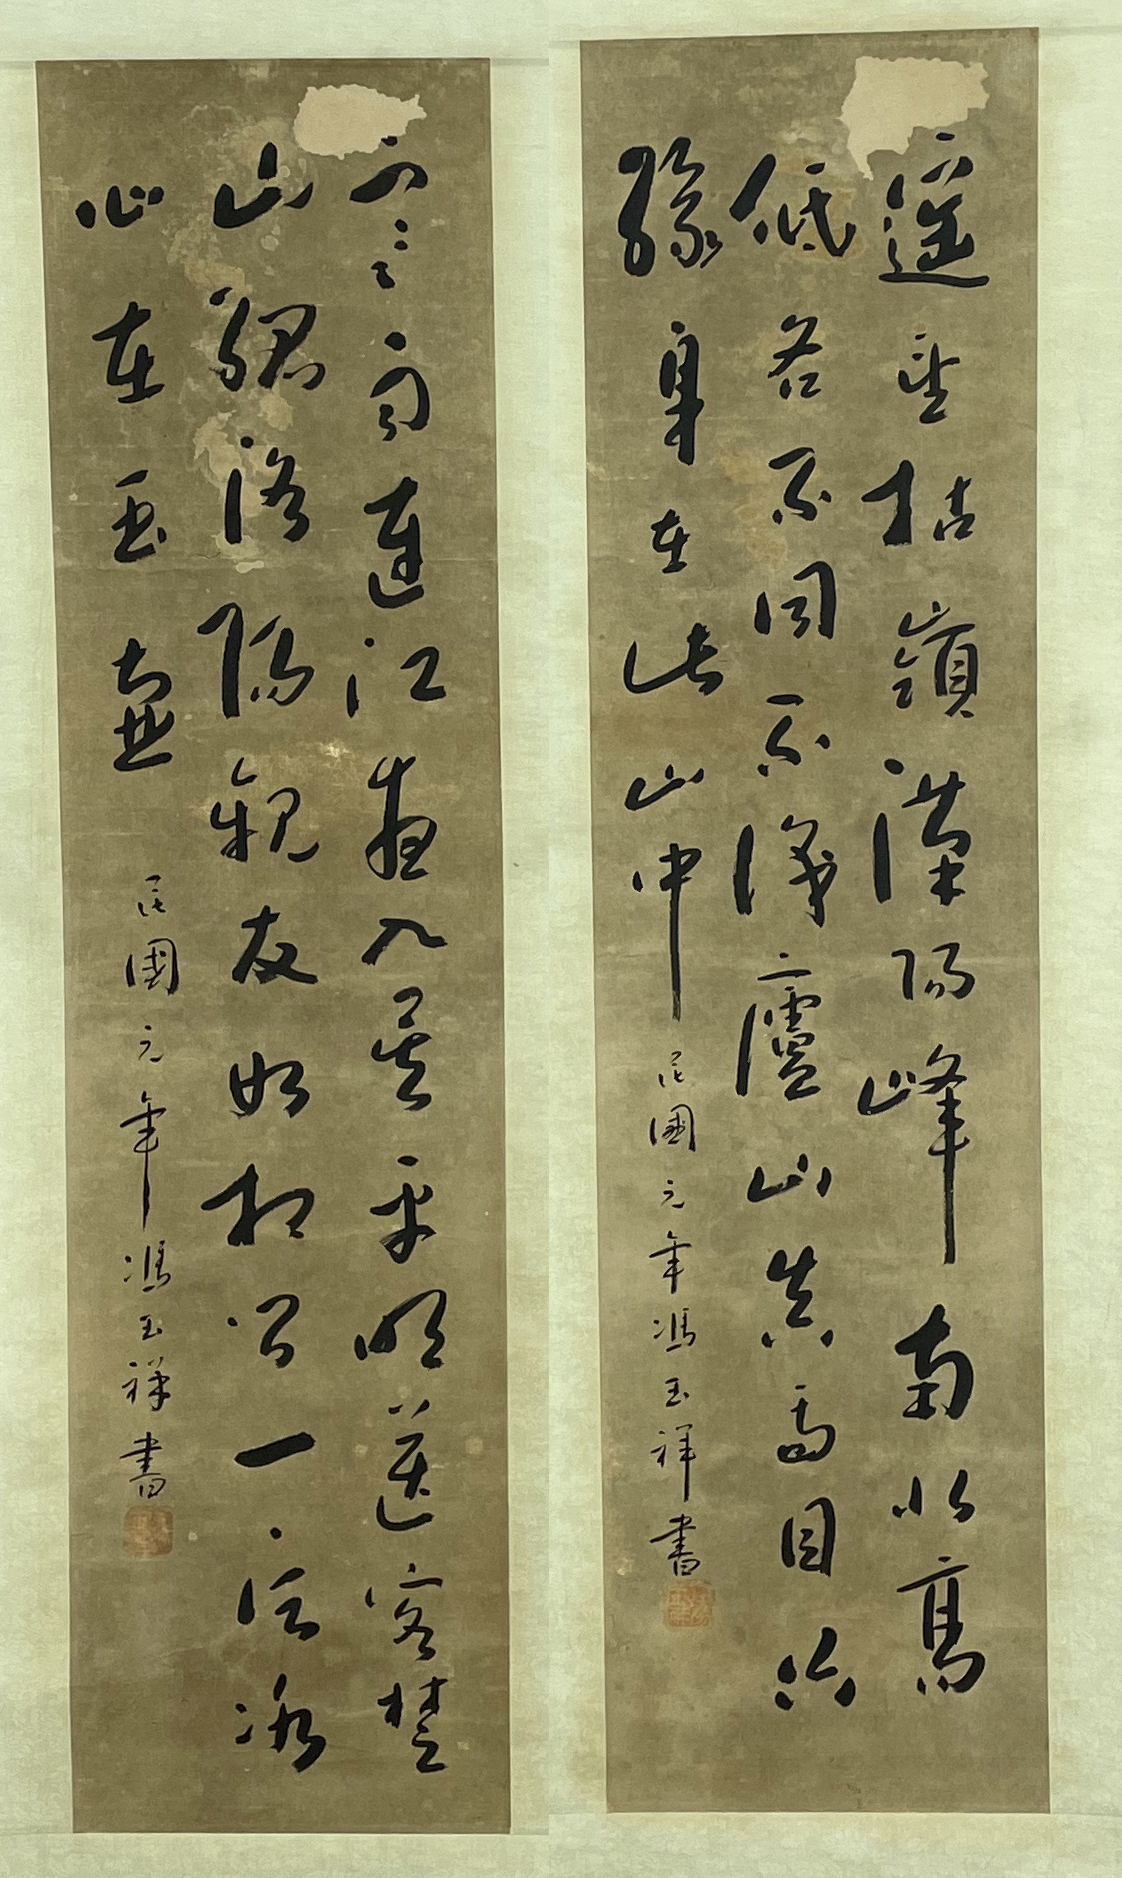 遙望牯嶺漢陽峰南北高
低各不同不識廬山真面目只
緣身在此山中
民國元年馮玉祥書
寒雨連江夜入吳平明送客楚
山孤洛陽親友如相問一片冰
心在玉壺
民國元年馮玉祥書